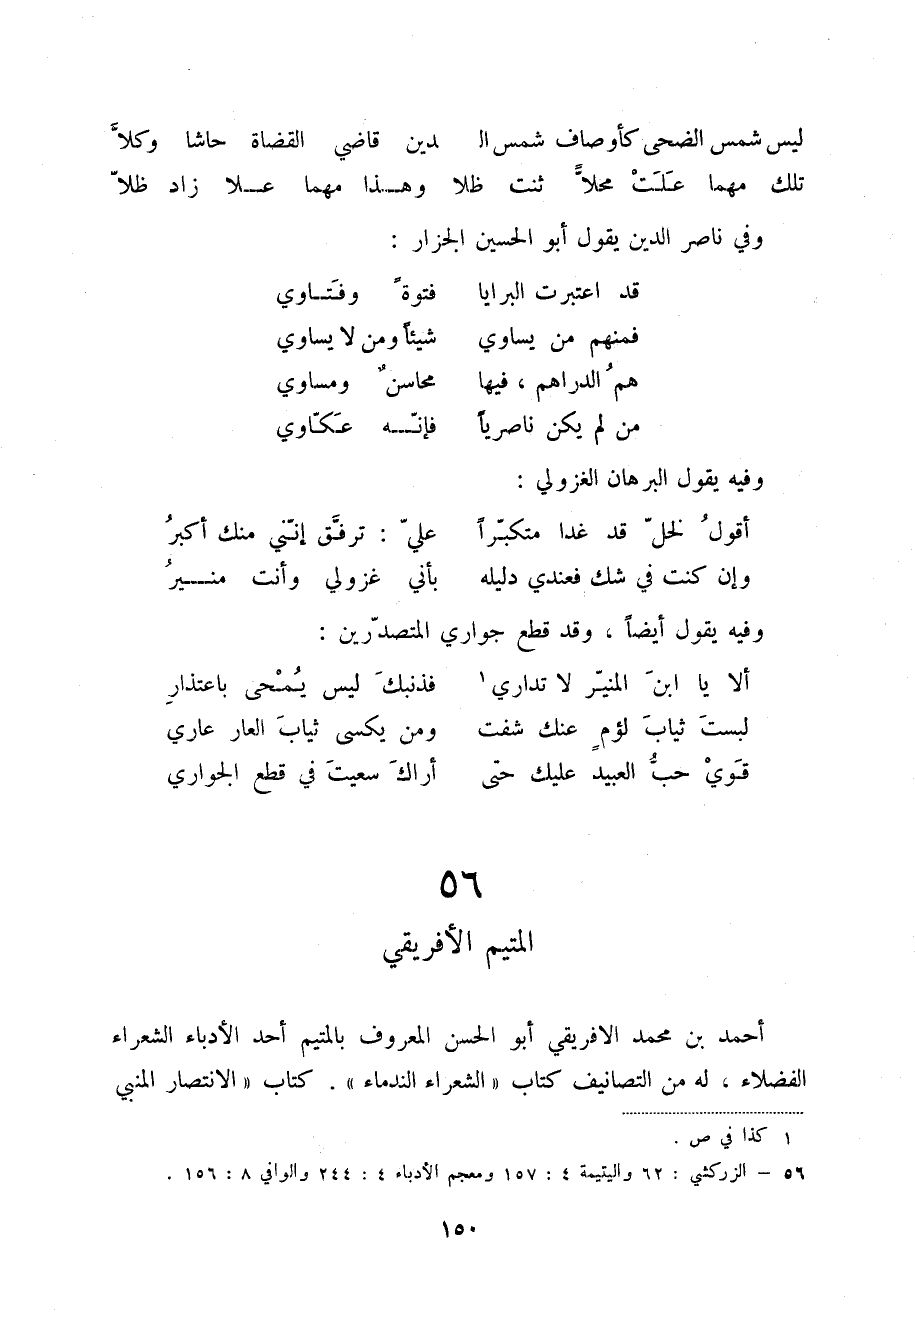 ليس شمس الضحى كأوصاف شمس الـ دين قاضي القضاة حاشا وكلاَّ
تلك مهما عَلَتْ محلاًّ ثنت ظلا وهـذا مهما عـلا زاد ظلاّ
وفي ناصر الدين يقول أبو الحسين الجزار :
قد اعتبرت البرايا فتوةً وفَتـاوي
فمنهم من يساوي شيئاً ومن لا يساوي
همُ الدراهم ، فيها محاسنٌ ومساوي
من لم يكن ناصرياً فإنّـه عَكّاوي
وفيه يقول البرهان الغزولي :
أقولُ لخلّ قد غدا متكبّراً عليّ : ترفَّق إنّني منك أكبرُ
وإن كنت في شك فعندي دليله بأني غزولي وأنت منـيرُ
وفيه يقول أيضاً ، وقد قطع جواري المتصدّرين :
ألا يا ابنَ المنيّر لا تداري١ فذنبكَ ليس يُمْحى باعتذارِ
لبستَ ثيابَ لؤمٍ عنك شفت ومن يكسى ثيابَ العار عاري
قَويْ حبُّ العبيد عليك حتّى أراكَ سعيتَ في قطع الجواري
٥٦
المتيم الأفريقي
أحمد بن محمد الافريقي أبو الحسن المعروف بالمتيم أحد الأدباء الشعراء
الفضلاء ، له من التصانيف كتاب « الشعراء الندماء » . كتاب « الانتصار المنبي
١ كذا في ص .
٥٦ – الزركشي : ٦٢ واليتيمة ٤ : ١٥٧ ومعجم الأدباء ٤ : ٢٤٤ والوافي ٨ : ١٥٦ .
١٥٠